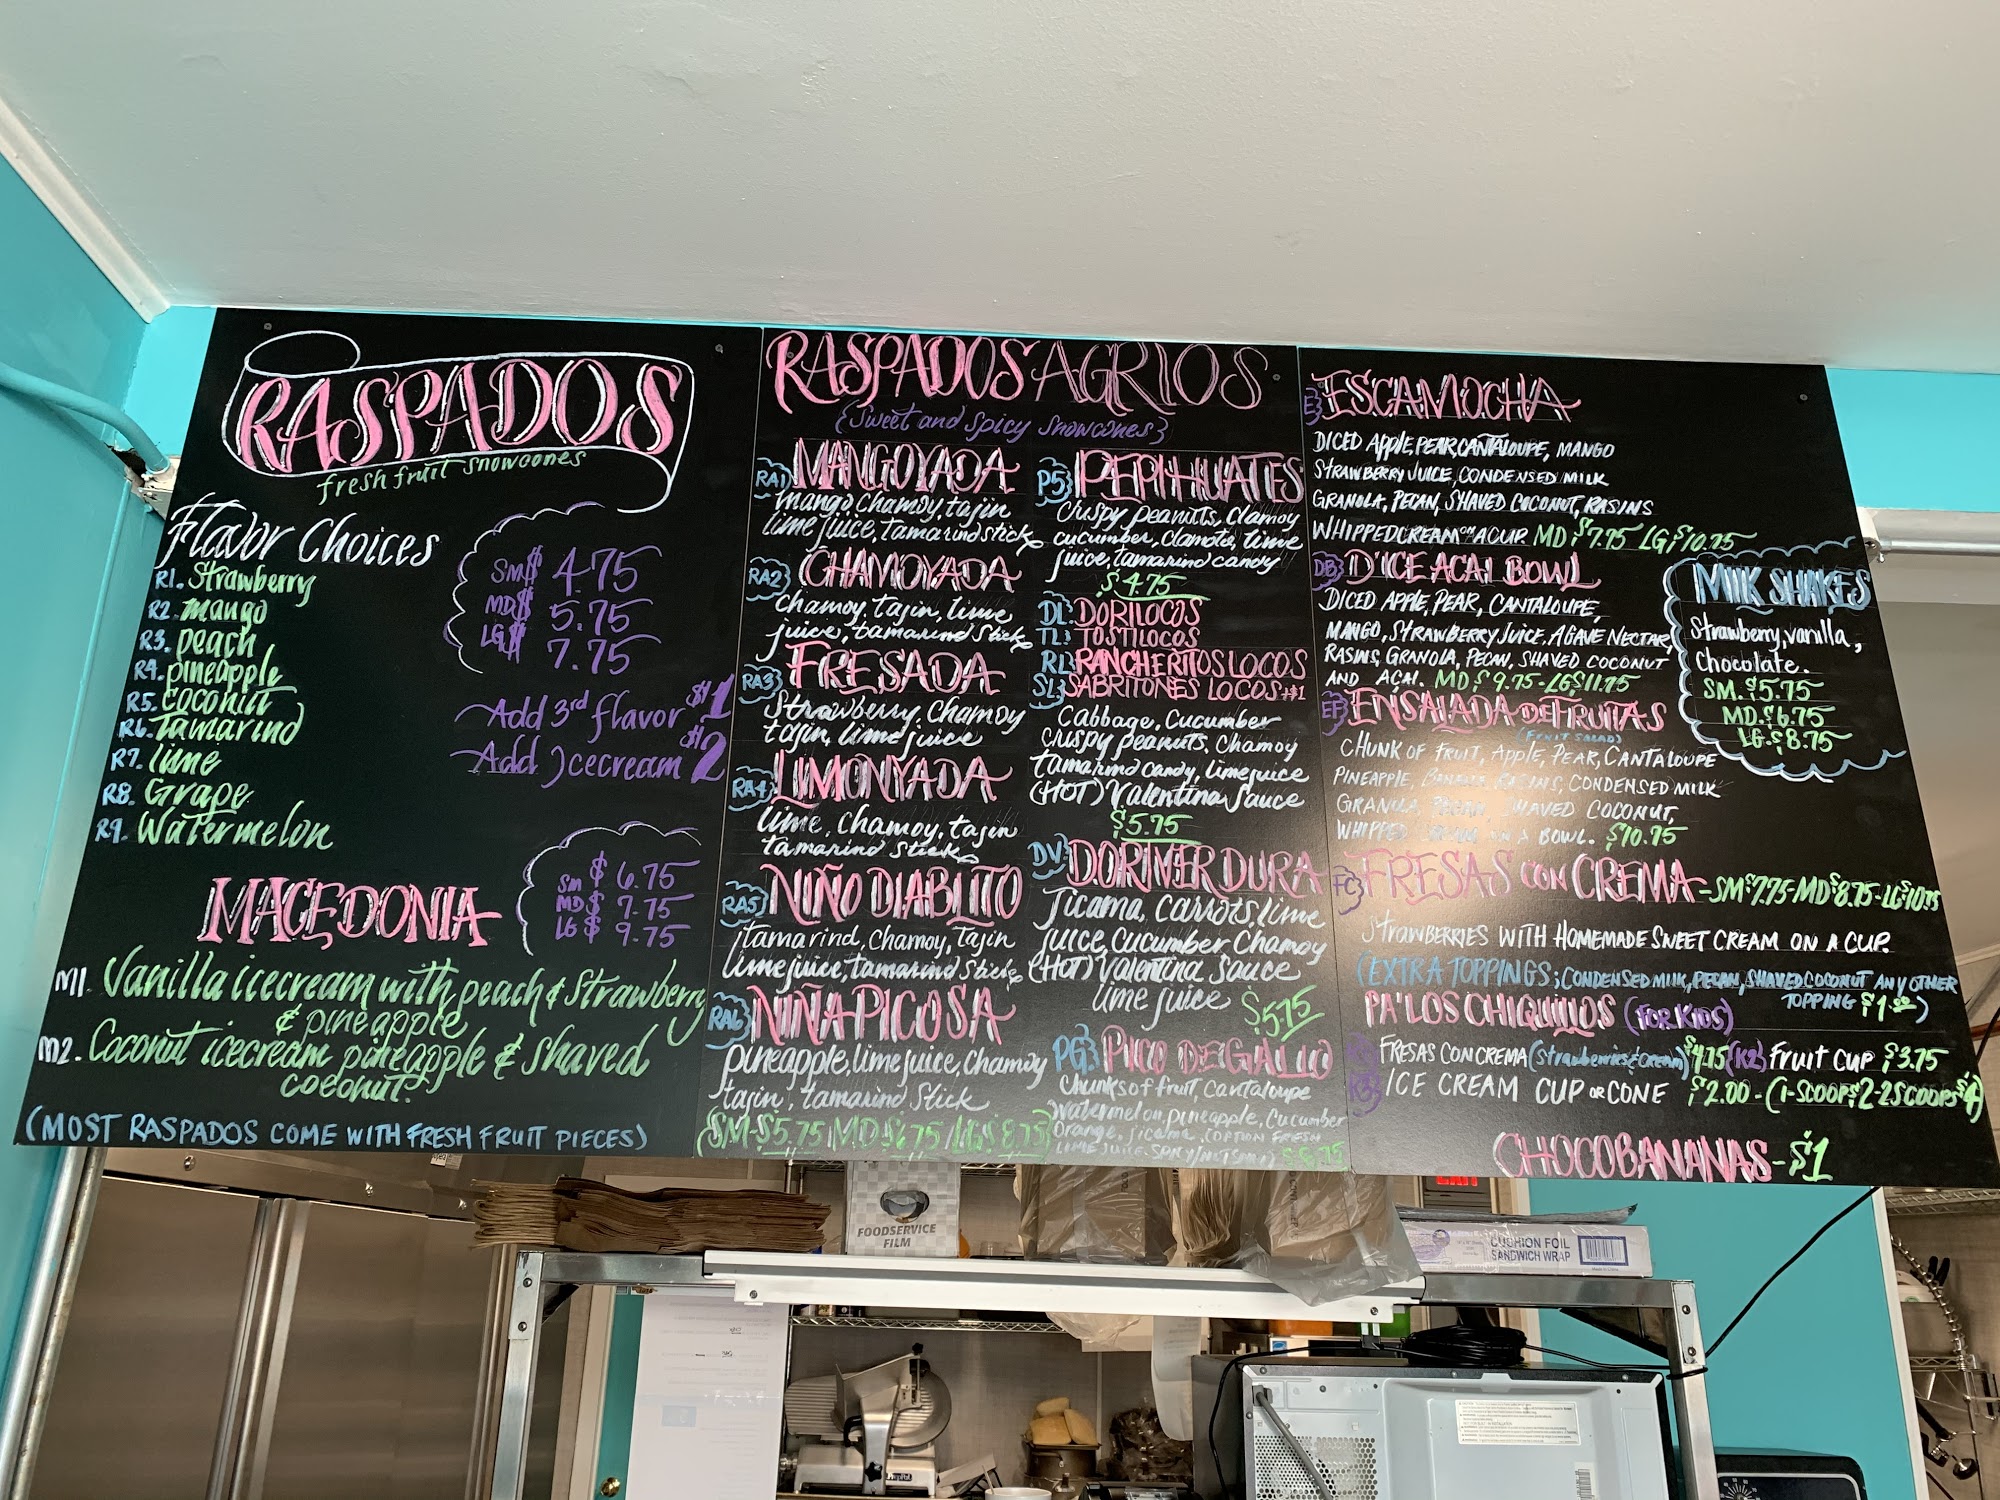 RASPADOS
fresh fruit snowcones
Flavor Choices
R1. Strawberry
R2. mango
R3. peach
R4. pineapple
R5. Coconut
R6. Tamarind
R7. lime
R8. Grape
R9. Watermelon
SM $ 4.75
MD $ 5.75
LG $ 7.75
Add 3rd flavor $1
Add Icecream $2
MACEDONIA
SM $ 6.75
MD $ 7.75
LG $ 9.75
M1. Vanilla icecream with peach & Strawberry
& pineapple
M2. Coconut icecream pineapple & shaved
coconut.
(MOST RASPADOS COME WITH FRESH FRUIT PIECES)
RASPADOS AGRIOS
{Sweet and spicy snowcones}
RA1} MANGOYADA
mango, chamoy, tajin
lime juice, tamarind stick
RA2} CHAMOYADA
Chamoy, tajin, lime
juice, tamarind stick
RA3} FRESADA
Strawberry, Chamoy
tajin, lime juice
RA4} LIMONYADA
lime, Chamoy, tajin
tamarind stick
RA5} NIÑO DIABLITO
tamarind, Chamoy, Tajin
lime juice, tamarind stick
RA6} NIÑA PICOSA
pineapple, lime juice, chamoy
tajin, tamarind stick
(SM-$5.75 MD $6.75 LG $8.75)
P5} PEPIHUATES
Crispy peanuts, Clamoy
cucumber, clamato, lime
juice, tamarind candy
$4.75
DL: DORILOCOS
TL: TOSTILOCOS
RL: RANCHERITOS LOCOS
SL: SABRITONES LOCOS +$1
Cabbage, Cucumber
crispy peanuts, Chamoy
tamarind candy, lime juice
(HOT) Valentina Sauce
$5.75
DV} DORIVERDURA
Jicama, Carrots, lime
juice, Cucumber Chamoy
(HOT) Valentina Sauce
lime juice $5.75
PG} PICO DE GALLO
Chunks of fruit, Cantaloupe
watermelon, pineapple, Cucumber
Orange, jicama, (OPTION FRESH
LIME JUICE
E} ESCAMOCHA
DICED APPLE, PEAR, CANTALOUPE, MANGO
STRAWBERRY JUICE, CONDENSED MILK
GRANOLA, PECAN, SHAVED COCONUT, RASINS
WHIPPED CREAM ON A CUP. MD $7.95 LG $10.75
DB} D'ICE ACAI BOWL
DICED APPLE, PEAR, CANTALOUPE,
MANGO, STRAWBERRY JUICE, AGAVE NECTAR,
RASINS, GRANOLA, PECAN, SHAVED COCONUT
AND ACAI. MD $9.75-LG $11.75
EF} ENSALADA DE FRUITAS
(FRUIT SALAD)
CHUNK OF FRUIT, APPLE, PEAR, CANTALOUPE
PINEAPPLE, BANANA RASINS, CONDENSED MILK
GRANOLA PECAN, SHAVED COCONUT,
WHIPPED CREAM ON A BOWL. $10.75
MILK SHAKES
Strawberry, vanilla,
Chocolate.
SM. $5.75
MD. $6.75
LG. $8.75
FC} FRESAS CON CREMA-SM $7.75-MD $8.75-LG $10.75
STRAWBERRIES WITH HOMEMADE SWEET CREAM ON A CUP.
(EXTRA TOPPINGS: CONDENSED MILK, PECAN, SHAVED COCONUT ANY OTHER
TOPPING $1.00)
PA'LOS CHIQUILLOS (FOR KIDS)
FRESAS CON CREMA (Strawberries & cream) $4.75 (K2) FRUIT CUP $3.75
K3} ICE CREAM CUP OR CONE $2.00-(1-SCOOP $2-2 SCOOPS $4)
CHOCOBANANAS-$1
FOODSERVICE
FILM
EXIT
CUSHION FOIL
SANDWICH WRAP